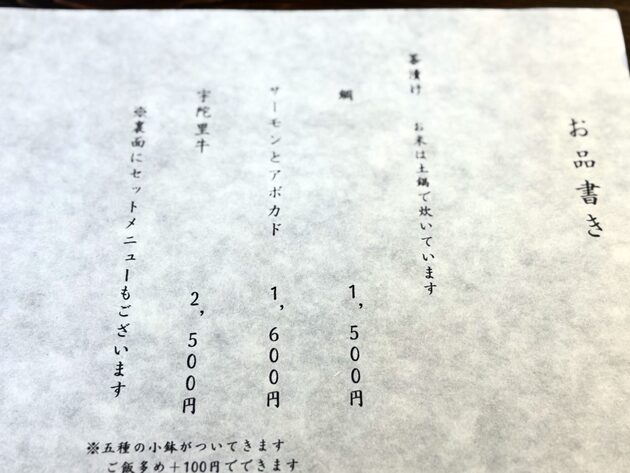 お品書き
茶漬け お米は土鍋で炊いています
鯛 1,500円
サーモンとアボカド 1,600円
宇陀里牛 2,500円
※裏面にセットメニューもございます
※五種の小鉢がついてきます
ご飯多め+100円でできます